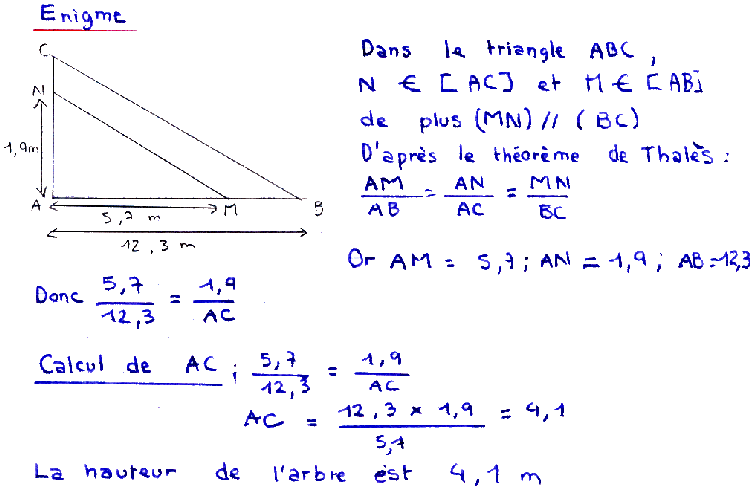 Enigme
C
N
1,9m
A
M
B
5,7 m
12,3 m
Dans le triangle ABC,
N ∈ [AC] et M ∈ [AB]
de plus (MN) // (BC)
D'après le théorème de Thalès :
AM/AB = AN/AC = MN/BC
Or AM = 5,7 ; AN = 1,9 ; AB = 12,3
Donc 5,7/12,3 = 1,9/AC
Calcul de AC ; 5,7/12,3 = 1,9/AC
AC = 12,3 × 1,9/5,7 = 4,1
La hauteur de l'arbre est 4,1 m